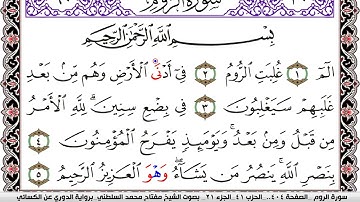 سورة الروم
بِسْمِ اللَّهِ الرَّحْمَٰنِ الرَّحِيمِ
الٓمٓ ١ غُلِبَتِ الرُّومُ ٢ فِىٓ أَدْنَى الْأَرْضِ وَهُم مِّنۢ بَعْدِ
غَلَبِهِمْ سَيَغْلِبُونَ ٣ فِى بِضْعِ سِنِينَ ۗ لِلَّهِ الْأَمْرُ
مِن قَبْلُ وَمِنۢ بَعْدُ ۚ وَيَوْمَئِذٍ يَفْرَحُ الْمُؤْمِنُونَ ٤
بِنَصْرِ اللَّهِ ۚ يَنصُرُ مَن يَشَآءُ ۖ وَهْوَ الْعَزِيزُ الرَّحِيمُ ٥
سورة الروم الصفحة ٤٠٤ـ الحزب ٤١ الجزء ٢١ بصوت الشيخ مفتاح محمد السلطني برواية الدوري عن الكسائي